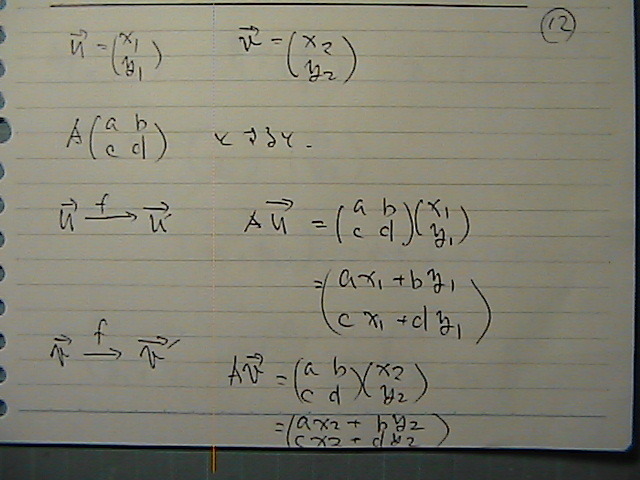 ⑫
u⃗ = (x₁ y₁) v⃗ = (x₂ y₂)
A (a b c d) とする.
u⃗ —f→ u⃗' A u⃗ = (a b c d)(x₁ y₁)
= (ax₁ + by₁ cx₁ + dy₁)
v⃗ —f→ v⃗' A v⃗ = (a b c d)(x₂ y₂)
= (ax₂ + by₂ cx₂ + dy₂)